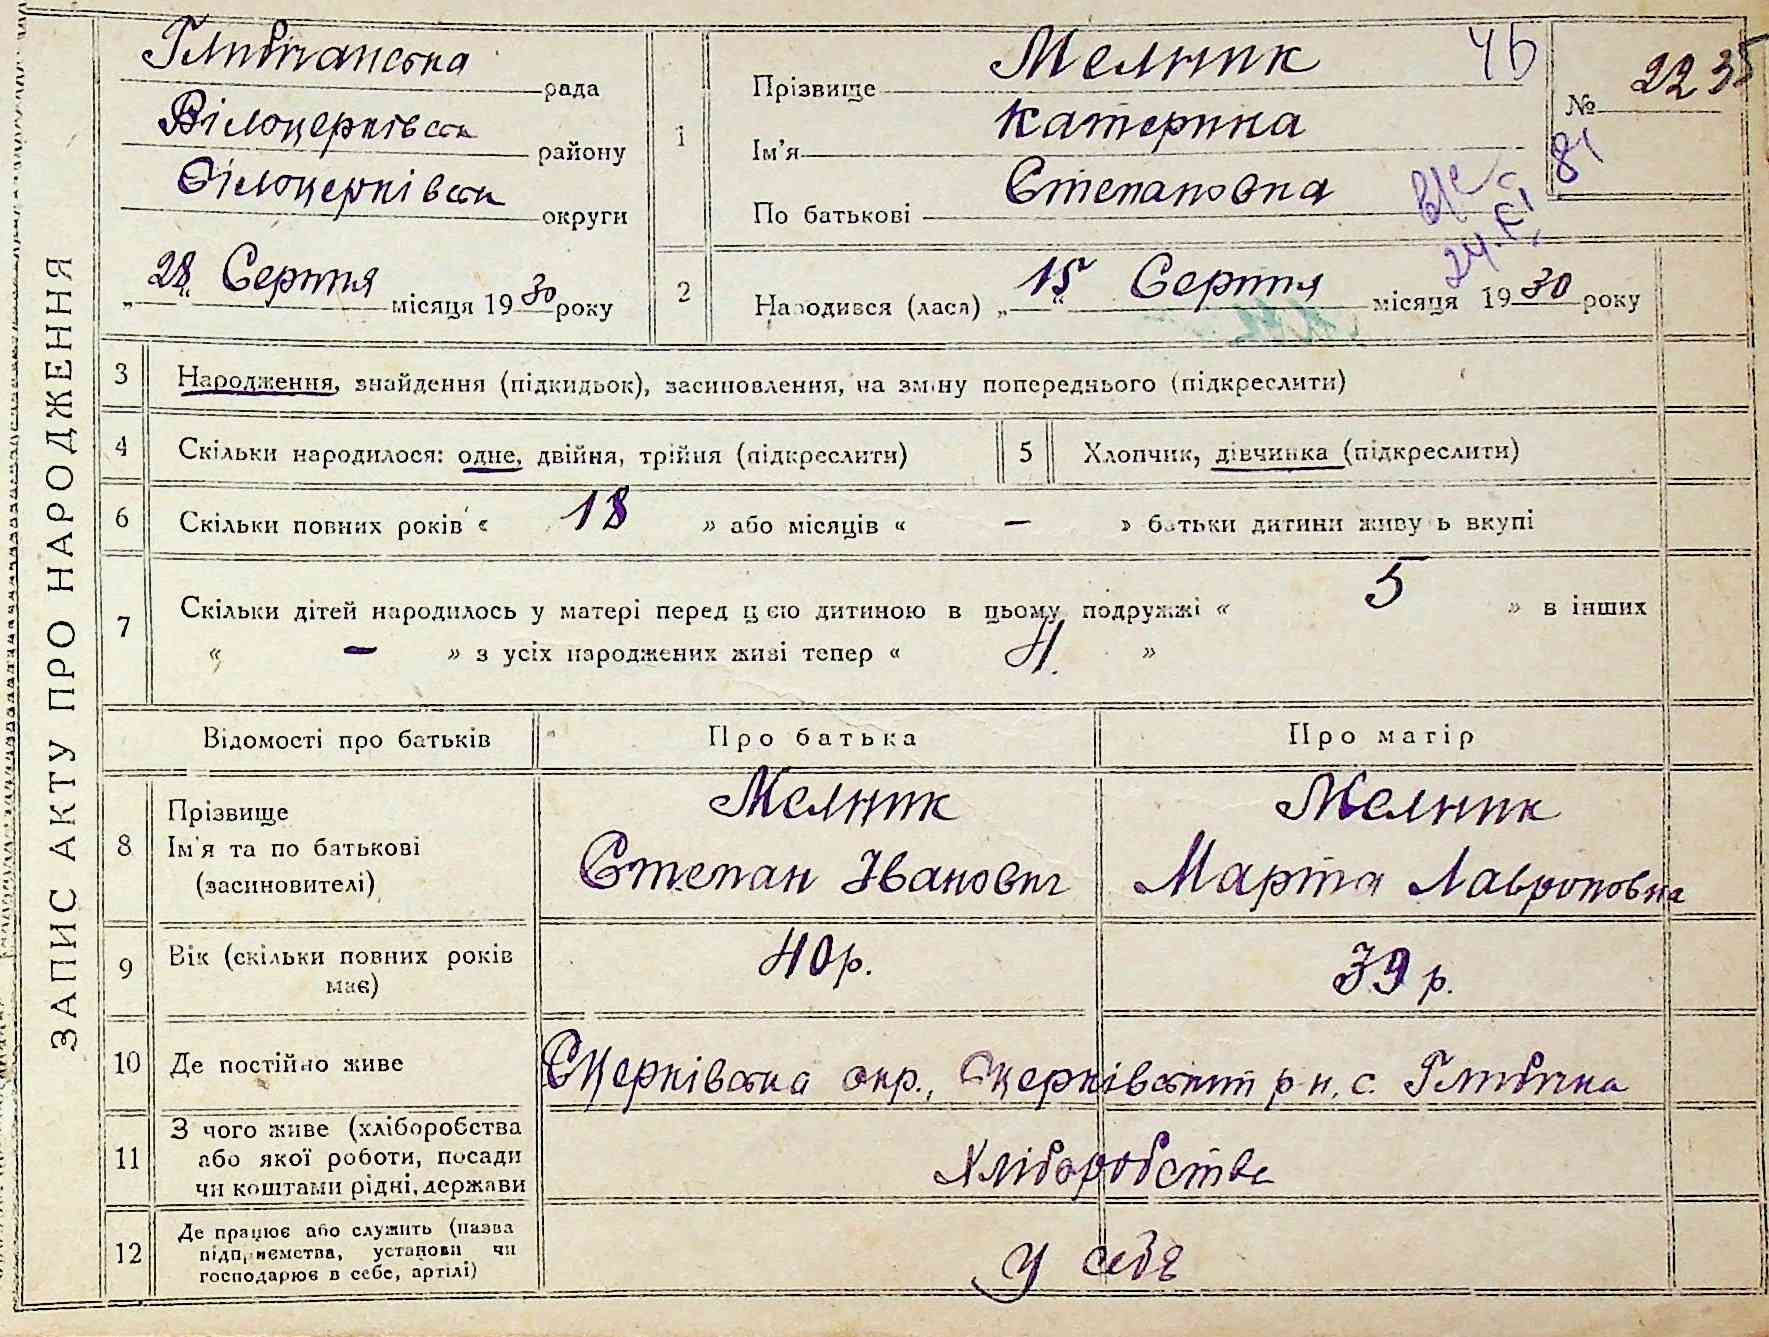 ЗАПИС АКТУ ПРО НАРОДЖЕННЯ
Глибочанська рада
Білоцерківськ району
Білоцерківськ округи
„28" Серпня місяця 1930 року
1
Прізвище Мельник
Ім'я Катерина
По батькові Степановна
№ 22 35
81
2
Народився (лася) „15" Серпня місяця 1930 року
3 Народження, знайдення (підкидьок), засиновлення, на зміну попереднього (підкреслити)
4 Скільки народилося: одне, двійня, трійня (підкреслити)
5 Хлопчик, дівчинка (підкреслити)
6 Скільки повних років « 18 » або місяців « — » батьки дитини живуть вкупі
7 Скільки дітей народилось у матері перед цією дитиною в цьому подружжі « 5 » в інших
« — » з усіх народжених живі тепер « 4. »
Відомості про батьків Про батька Про матір
8 Прізвище
Ім'я та по батькові
(засиновителі)
Мельник
Степан Іванович
Мельник
Марта Лавроновна
9 Вік (скільки повних років
має)
40 р.
39 р.
10 Де постійно живе
БЦерківська окр., Бцерківський р н. с. Глибічка
11 З чого живе (хліборобства
або якої роботи, посади
чи коштами рідні, держави
Хліборобство
12 Де працює або служить (назва
підприємства, установи чи
господарює в себе, артілі)
У себе